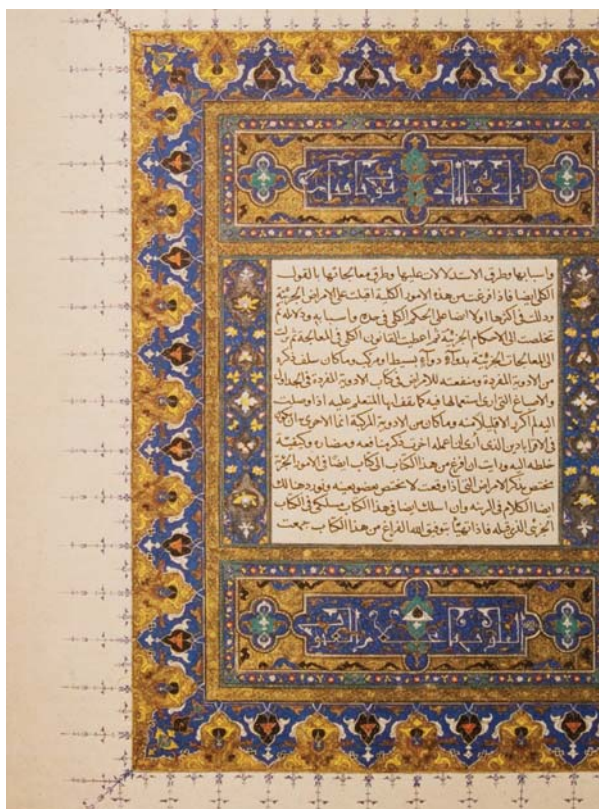 واسبابها وطرق الاستدلالات عليها وطرق معالجاتها بالقول
الكلى ايضا فاذا فرغت من هذه الامور الكلية اقبلت على الامراض الجزئية
ودللت فى اكثرها اولا ايضا على الحكم الكلى فى حده واسبابه ودلائله ثم
تخلصت الى الاحكام الجزئية ثم اعطيت القانون الكلى فى المعالجة ثم نزلت
الى المعالجات الجزئية بدواء دواء بسيط او مركب وما كان سلف ذكره
من الادوية المفردة ومنفعته للامراض فى كتاب الادوية المفردة فى الجداول
والاصباغ التى ارى استعمالها فيه كما تقف ايها المتعلم عليه اذا وصلت
اليه لم اكرر الا قليلا منه وما كان من الادوية المركبة انما الاحرى ان يكون
فى الاقراباذين الذى ارى ان اعمله اخرت ذكر منافعه ومضاره وكيفية
خلطه اليه ورايت ان افرغ من هذا الكتاب الى كتاب ايضا فى الامور الجزئية
مختص بذكر الامراض التى اذا وقعت لا تختص بعضو بعينه ونورد هنالك
ايضا الكلام فى الزينة وان اسلك ايضا فى هذا الكتاب مسلكى فى الكتاب
الجزئى الذى قبله فاذا تهيأ بتوفيق الله الفراغ من هذا الكتاب جمعت